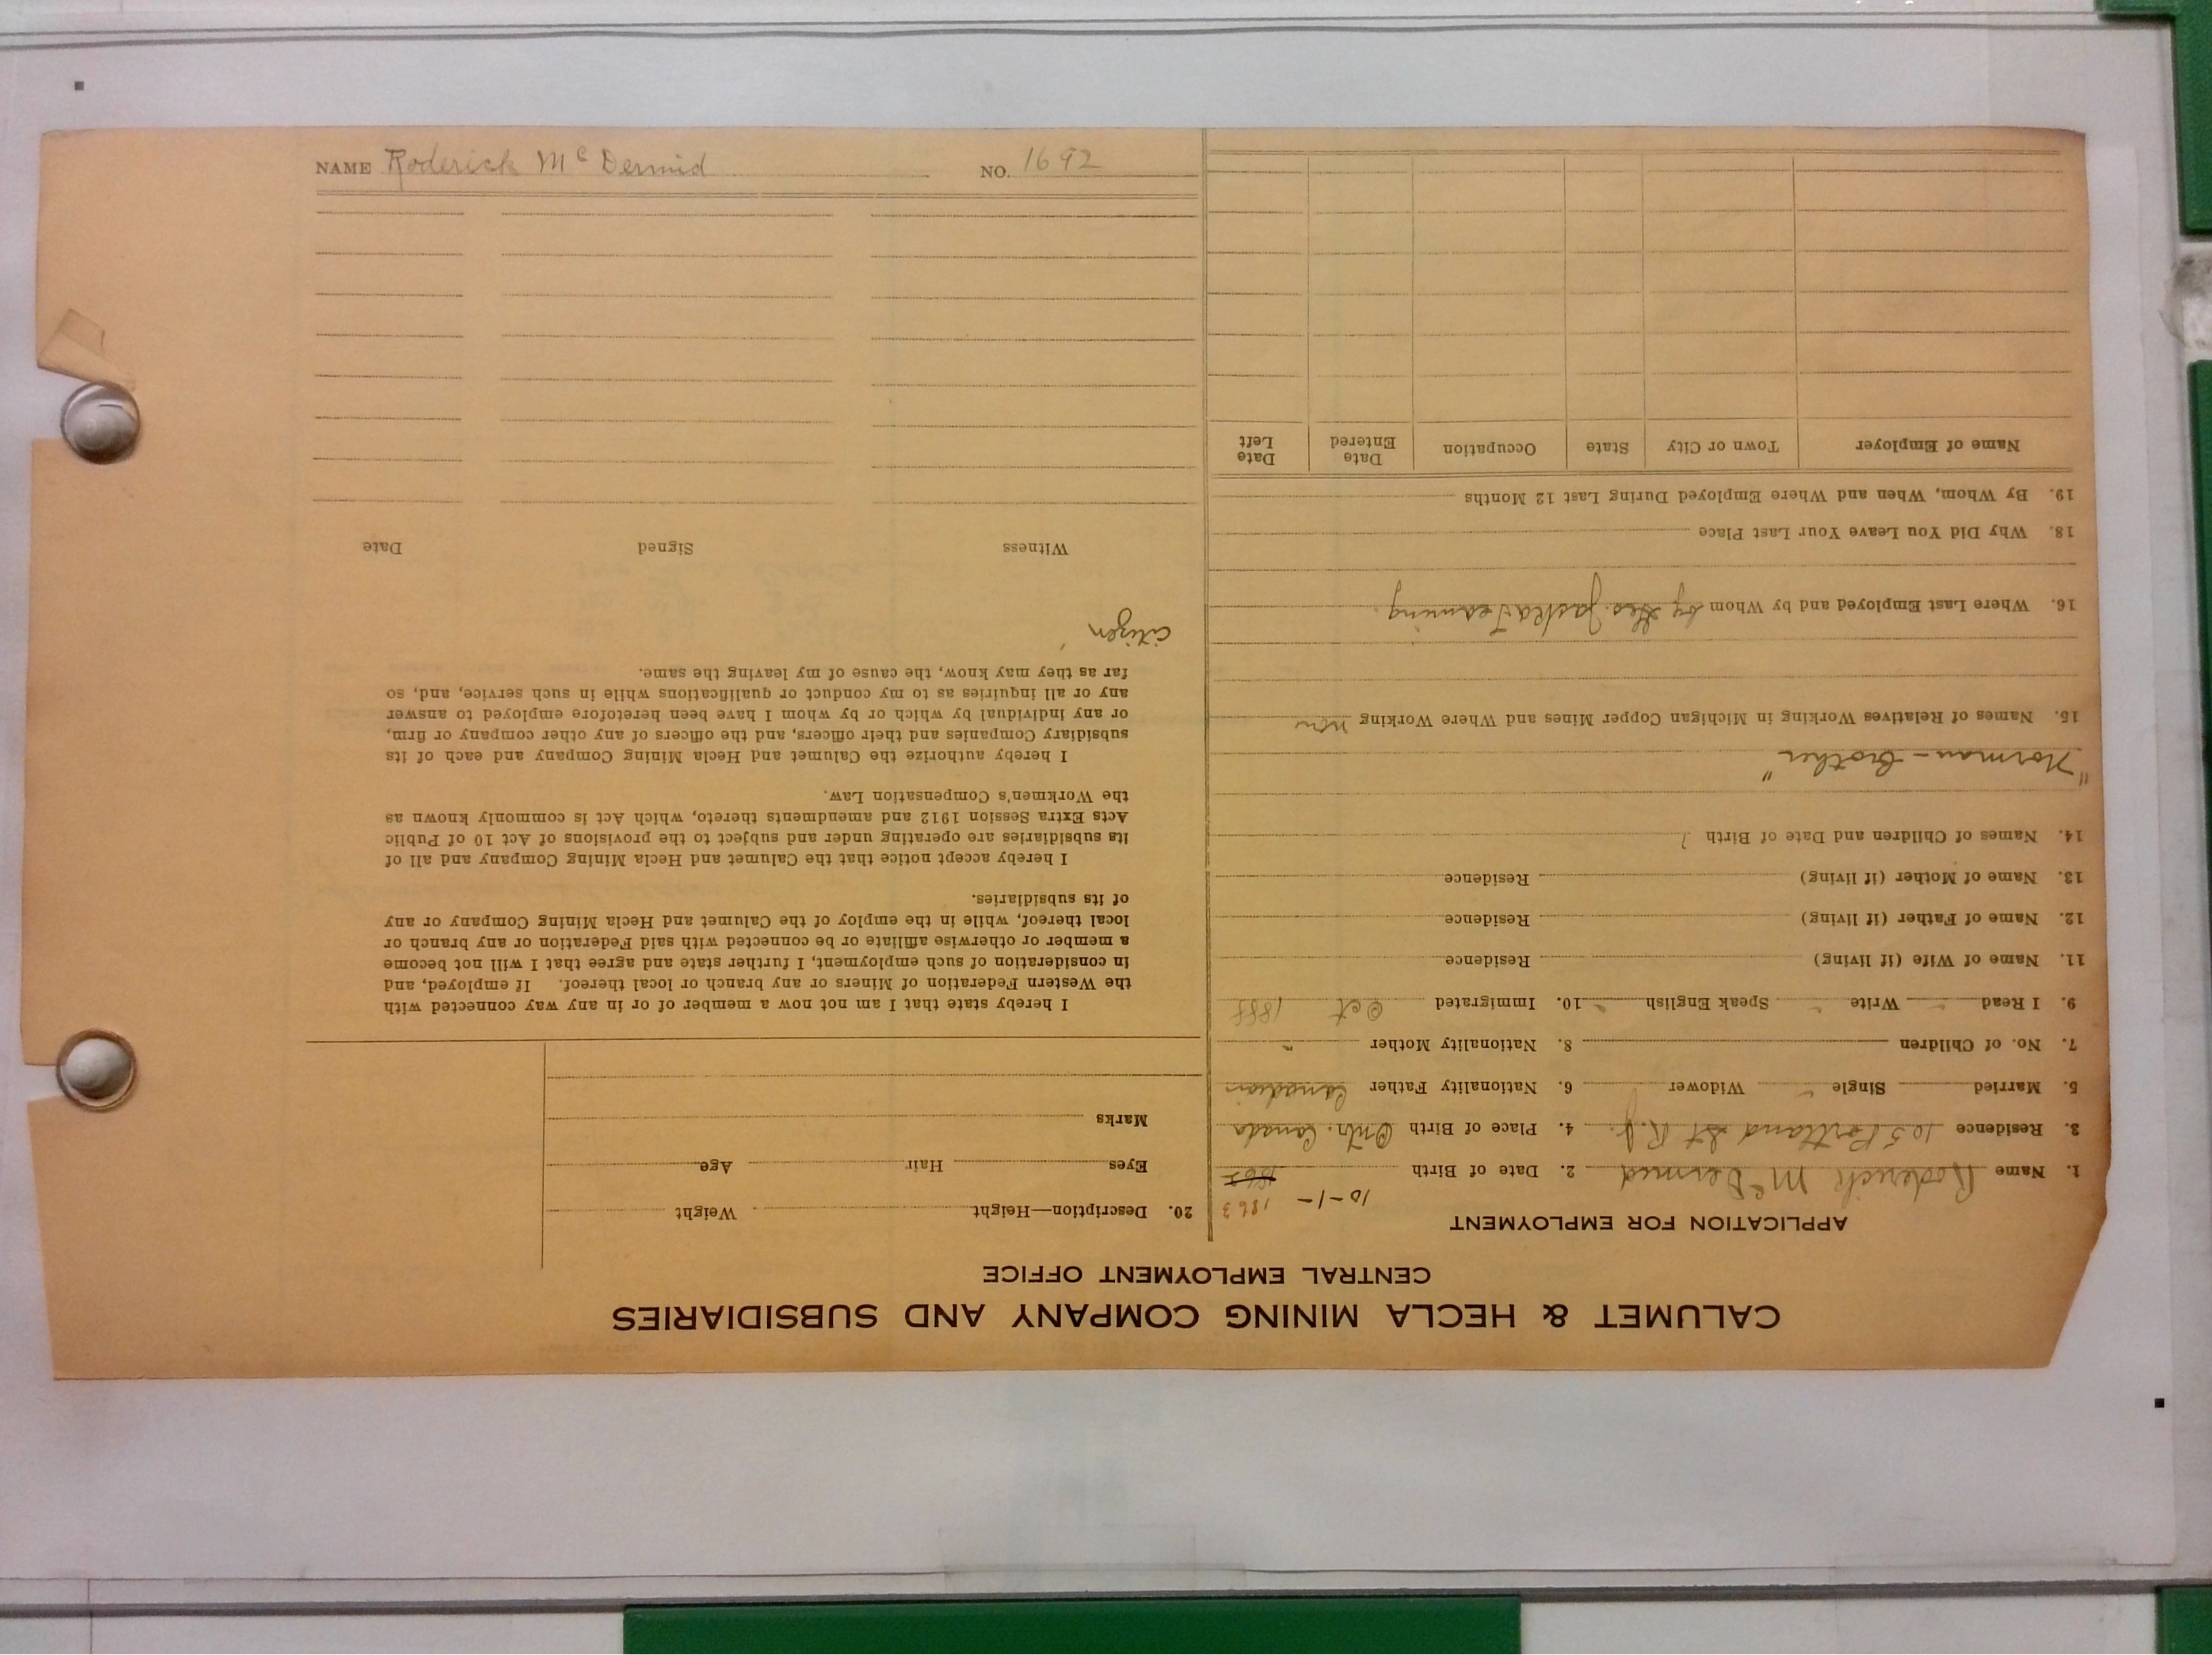 CALUMET & HECLA MINING COMPANY AND SUBSIDIARIES
CENTRAL EMPLOYMENT OFFICE
APPLICATION FOR EMPLOYMENT
10-1- 1863
1. Name Roderick McDermid 2. Date of Birth
3. Residence 105 Portland St R.J. 4. Place of Birth Ont. Canada
5. Married Single Widower 6. Nationality Father Canadian
7. No. of Children 8. Nationality Mother "
9. I Read Write Speak English 10. Immigrated Oct 1888
11. Name of Wife (if living) Residence
12. Name of Father (if living) Residence
13. Name of Mother (if living) Residence
14. Names of Children and Date of Birth
"Norman - brother"
15. Names of Relatives Working in Michigan Copper Mines and Where Working
16. Where Last Employed and by Whom by Geo. Jaska Teaming.
18. Why Did You Leave Your Last Place
19. By Whom, When and Where Employed During Last 12 Months
Name of Employer Town or City State Occupation Date Entered Date Left
20. Description—Height Weight
Eyes Hair Age
Marks
I hereby state that I am not now a member of or in any way connected with
the Western Federation of Miners or any branch or local thereof. If employed, and
in consideration of such employment, I further state and agree that I will not become
a member or otherwise affiliate or be connected with said Federation or any branch or
local thereof, while in the employ of the Calumet and Hecla Mining Company or any
of its subsidiaries.
I hereby accept notice that the Calumet and Hecla Mining Company and all of
its subsidiaries are operating under and subject to the provisions of Act 10 of Public
Acts Extra Session 1912 and amendments thereto, which Act is commonly known as
the Workmen's Compensation Law.
I hereby authorize the Calumet and Hecla Mining Company and each of its
subsidiary Companies and their officers, and the officers of any other company or firm,
or any individual by which or by whom I have been heretofore employed to answer
any or all inquiries as to my conduct or qualifications while in such service, and, so
far as they may know, the cause of my leaving the same.
citizen
Witness Signed Date
NAME Roderick McDermid NO. 1692